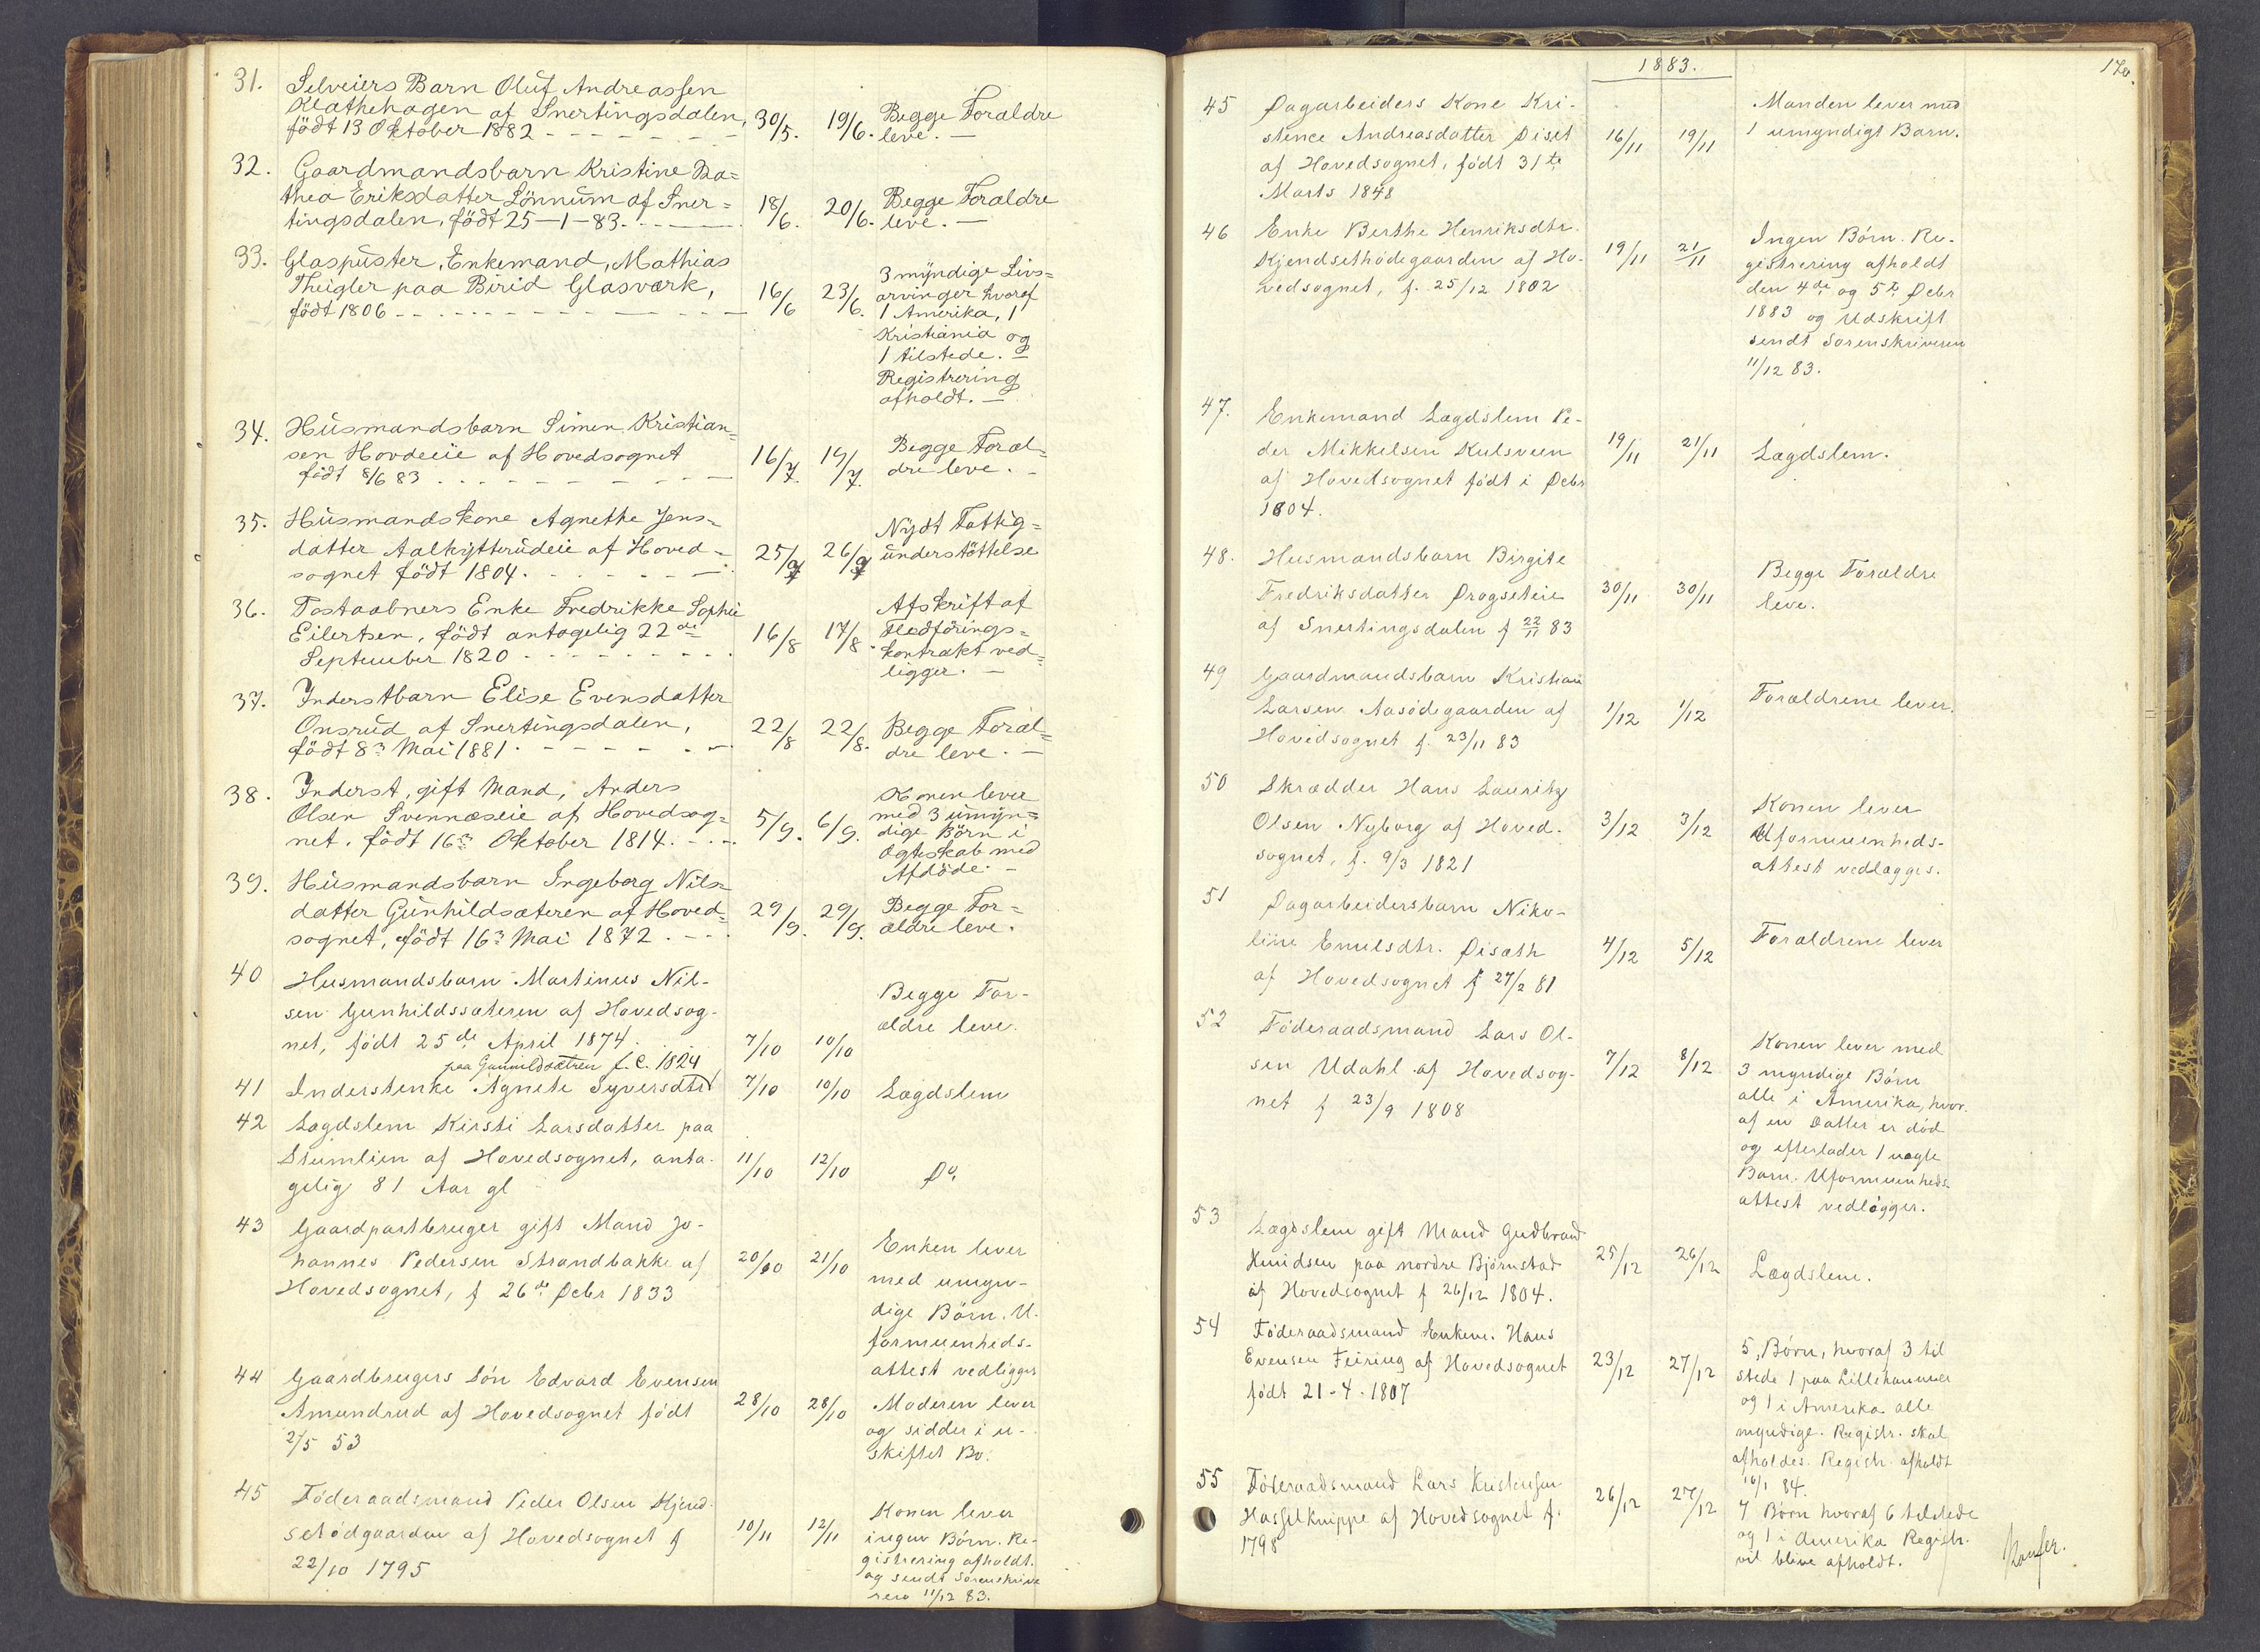 31. Selveiers Barn Oluf Andreassen
Klæthehagen af Snertingsdalen,
født 13 Oktober 1882 - 30/5. 19/6. Begge Forældre
leve. —
32. Gaardmandsbarn Kristine Ma=
thea Eriksdatter Lönnum af Sner=
tingsdalen, født 25-1-83. 18/6. 20/6. Begge Forældre
leve. —
33. Glaspuster, Enkemand, Mathias
Theigler paa Birid Glasværk,
født 1806 16/6 23/6. 3 myndige Livs=
arvinger hvoraf
1 Amerika, 1
Kristiania og
1 tilstede. —
Registrering
afholdt. —
34. Husmandsbarn Simen Kristian=
sen Hovdeeie af Hovedsognet
født 8/6 83 16/7. 19/7. Begge Foræl=
dre leve. -
35. Husmandskone Agnethe Jens=
datter Aalkytterudeie af Hoved=
sognet født 1804. 25/7 26/7 Nydt Fattig=
understöttelse
36. Postaabners Enke Fredrikke Sophie
Eilertsen, født antagelig 22de
September 1820 16/8 17/8. Afskrift af
Fledförings=
kontrakt ved=
ligger. —
37. Inderstbarn Elise Evensdatter
Onsrud af Snertingsdalen,
født 8de Mai 1881 22/8 22/8. Begge Foræl=
dre leve. —
38. Inderst, gift Mand, Anders
Olsen Svennæseie af Hovedsog=
net. født 16de Oktober 1814. 5/9. 6/9. Konen lever
med 3 umyn=
dige Börn i
Ægteskab med
Afdöde. —
39. Husmandsbarn Ingeborg Nils=
datter Gunhildsæteren af Hoved=
sognet, født 16de Mai 1872. 29/9. 29/9. Begge For=
ældre leve.
40 Husmandsbarn Martinus Nil-
sen Gunhildssæteren af Hovedsog-
net, født 25de April 1874. 7/10 10/10 Begge For-
ældre leve.
paa Gunnildsætren f. C. 1824
41 Inderstenke Agnete Syversdtr 7/10 10/10 Lægdslem
42 Lægdslem Kirsti Larsdatter paa
Stumlien af Hovedsognet, anta-
gelig 81 Aar gl 11/10 12/10 Do.
43 Gaardpartbruger gift Mand Jo-
hannes Pedersen Strandbakke af
Hovedsognet, f 26de Debr 1833 20/10 21/10 Enken lever
med umyn-
dige Börn. U-
formuenheds-
attest vedligger
44 Gaardbrugers Sön Edvard Evensen
Amundrud af Hovedsognet født
2/5 53 28/10 28/10 Moderen lever
og sidder i u-
skiftet Bo.
45 Föderaadsmand Peder Olsen Kjend-
setödgaarden af Hovedsognet f
22/10 1795 10/11 12/11 Konen lever
ingen Börn. Re-
gistrering afholdt.
og sendt Sorenskrive
reren 11/12 83.
1883.
170.
45 Dagarbeiders Kone Kri-
stence Andreasdatter Diset
af Hovedsognet, født 31te
Marts 1848 16/11 19/11 Manden lever med
1 umyndigt Barn.
46 Enke Berthe Henriksdtr.
Kjendsethödegaarden af Ho-
vedsognet, f. 25/12 1802 19/11 21/11 Ingen Börn. Re-
gistrering afholdt
den 4de og 5te Debr
1883 og Udskrift
sendt Sorenskriveren
11/12 83.
47. Enkemand Lægdslem Pe-
der Mikkelsen Kulsveen
af Hovedsognet født i Debr
1804. 19/11 21/11 Lægdslem.
48. Husmandsbarn Birgite
Fredriksdatter Drogseteie
af Snertingsdalen f 22/11 83 30/11 30/11 Begge Forældre
leve.
49 Gaardmandsbarn Kristian
Larsen Aasödegaarden af
Hovedsognet f. 23/11 83 1/12 1/12 Forældrene lever.
50 Skrædder Hans Lauritz
Olsen Nyborg af Hoved-
sognet, f. 9/3 1821 3/12 3/12 Konen lever
Uformuenheds-
attest vedlægges.
51 Dagarbeidersbarn Niko-
line Emilsdtr. Disæth
af Hovedsognet f 27/2 81 4/12 5/12 Forældrene lever
52 Föderaadsmand Lars Ol-
sen Udahl af Hovedsog-
net f 23/9 1808 7/12 8/12 Konen lever med
3 myndige Börn
alle i Amerika, hvor-
af en Datter er död
og efterlader 1 uægte
Barn. Uformuenheds-
attest vedlägger.
53 Lægdslem gift Mand Gudbrand
Knudsen paa nordre Björnstad
af Hovedsognet f 26/12 1804. 25/12 26/12 Lægdslem.
54 Föderaadsmand Enkem. Hans
Evensen Feiring af Hovedsognet
født 21-4-1807 23/12 27/12 5, Börn, hvoraf 3 til
stede 1 paa Lillehammer
og 1 i Amerika alle
myndige. Registr. skal
afholdes. Registr. afholdt
16/1 84.
55 Föderaadsmand Lars Kristensen
Hasselknippe af Hovedsognet f.
1798 26/12 27/12 7 Börn hvoraf 6 tilstede
og 1 i Amerika Registr.
vil blive afholdt.